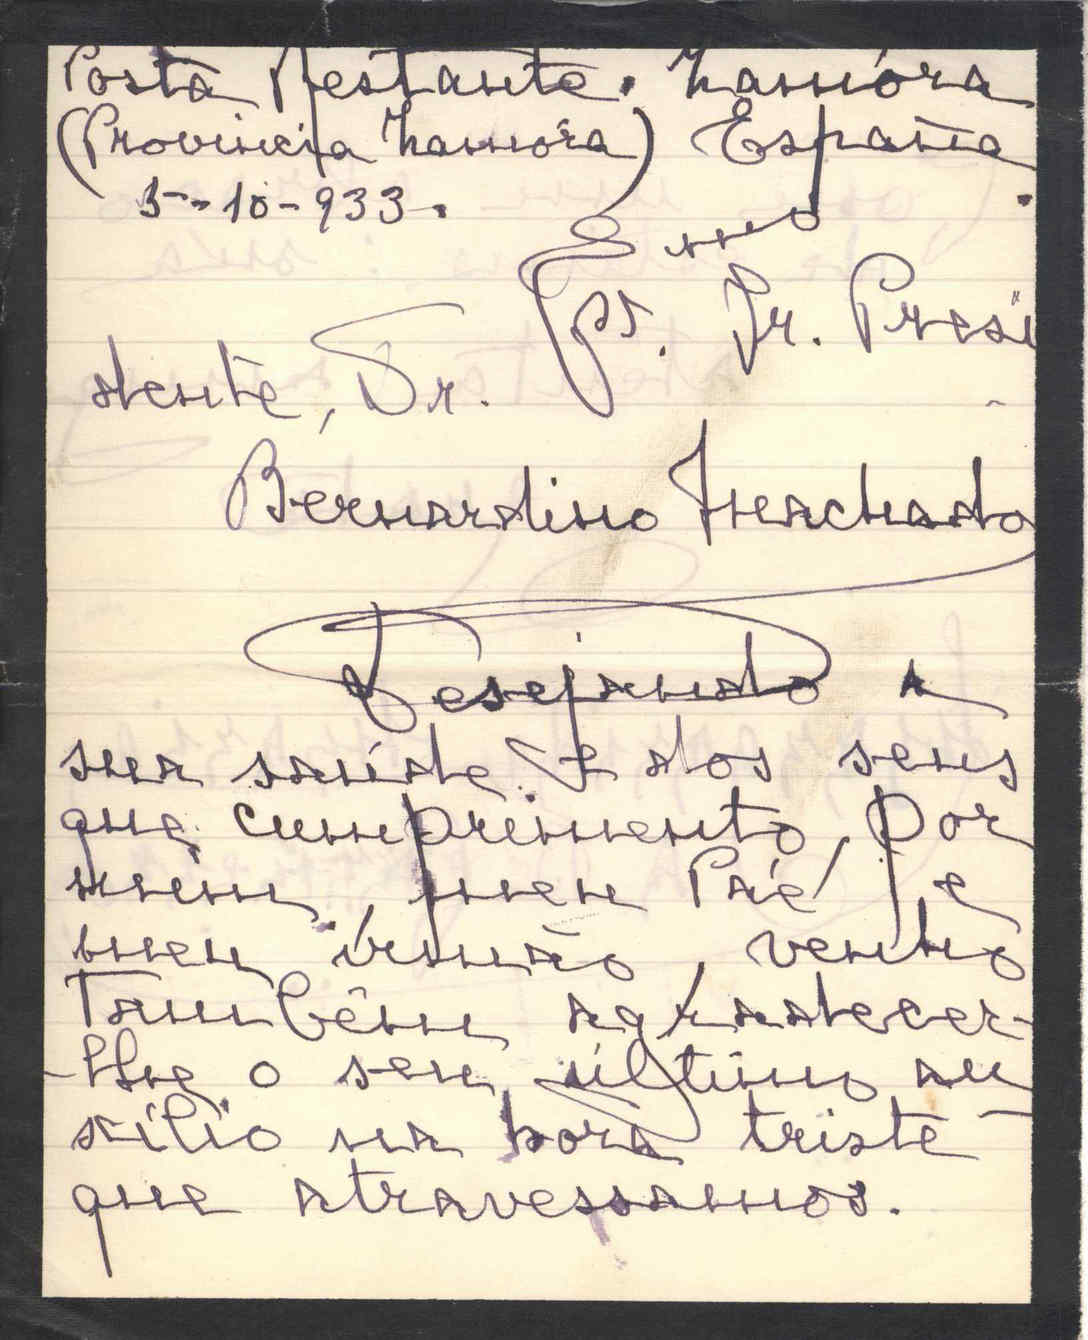 Posta Restante. Zamóra
(Provincia Zamóra) España.
5-10-933.
Exmo
Sr. Presi
dente, Dr.
Bernardino Machado
Desejando a
sua saúde e dos seus
que cumprimento, por
mim, meu Pae e
meu irmão, venho
também agradecer-
-lhe o seu último au
xílio na hora triste
que atravessamos.